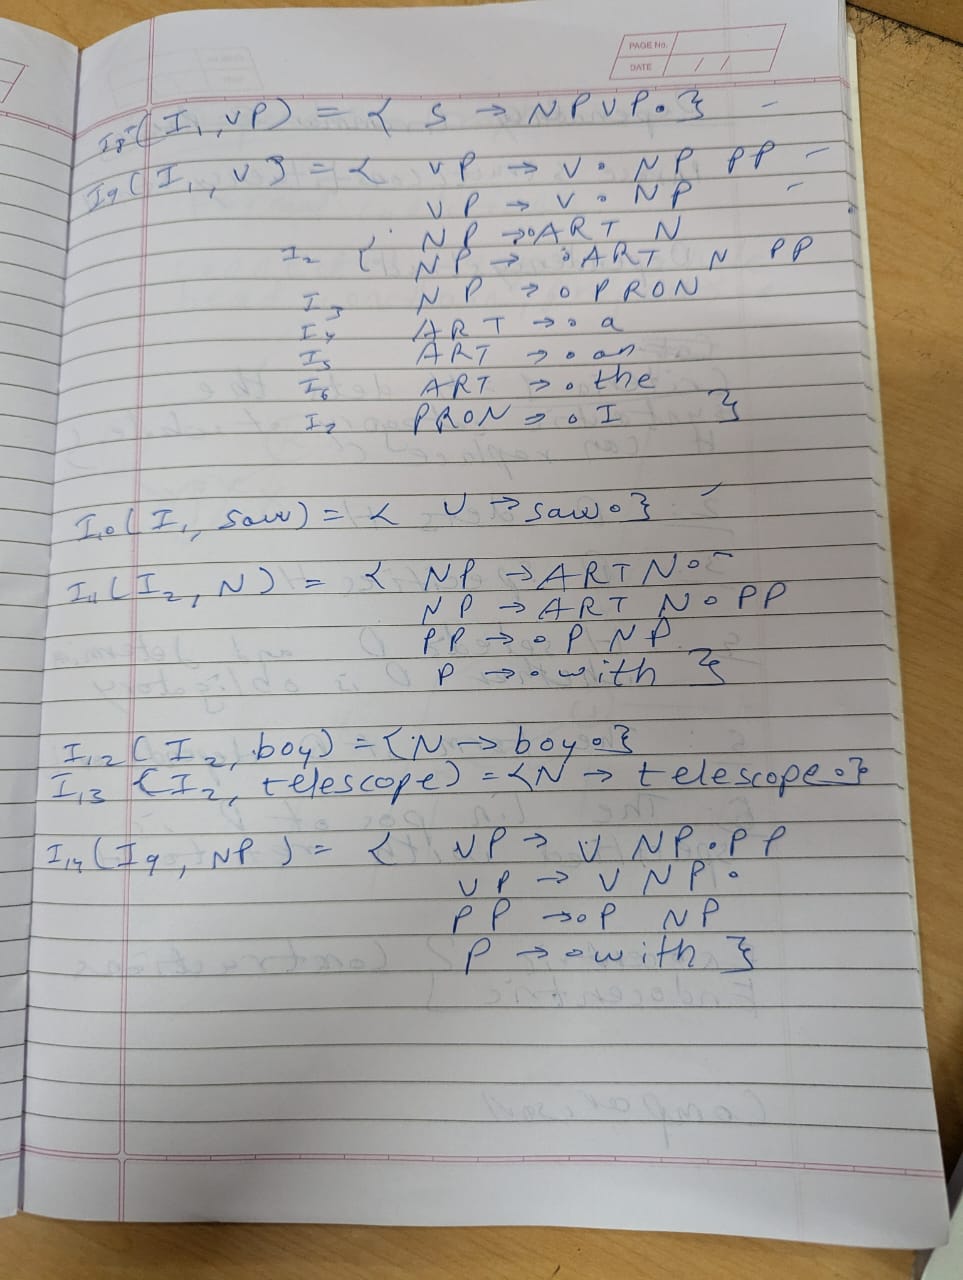 PAGE No.
DATE / /
I8 (I1, VP) = { S → NP VP• }
I9 (I1, V } = { VP → V • NP PP
VP → V • NP
I2 { NP → •ART N
NP → •ART N PP
I3 NP → • PRON
I4 ART → • a
I5 ART → • an
I6 ART → • the
I7 PRON → • I }
I10 (I1, saw) = { V → saw• }
I11 (I2, N) = { NP → ART N•
NP → ART N • PP
PP → • P NP
P → • with }
I12 (I2, boy) = {N → boy•}
I13 (I2, telescope) = {N → telescope•}
I14 (I9, NP) = { VP → V NP • PP
VP → V NP •
PP → •P NP
P → • with }